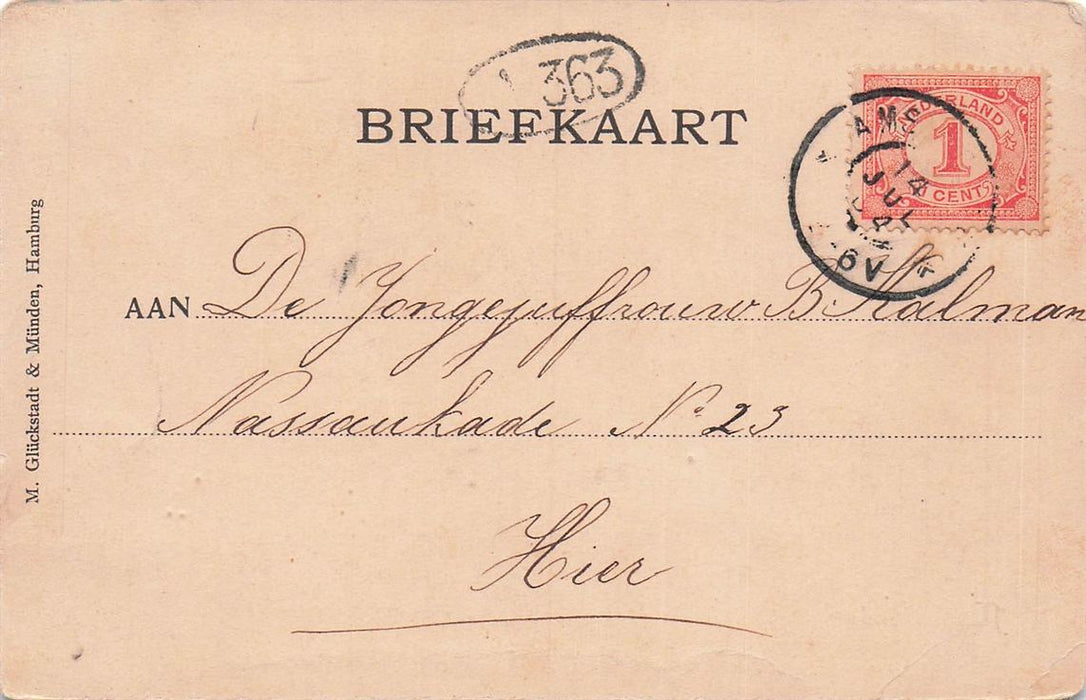 363
BRIEFKAART
NEDERLAND
1
CENT
AMS
14
JUL
04
6V
AAN De Jongejuffrouw B Kalman
Nassaukade No 23
Hier
M. Glückstadt & Münden, Hamburg